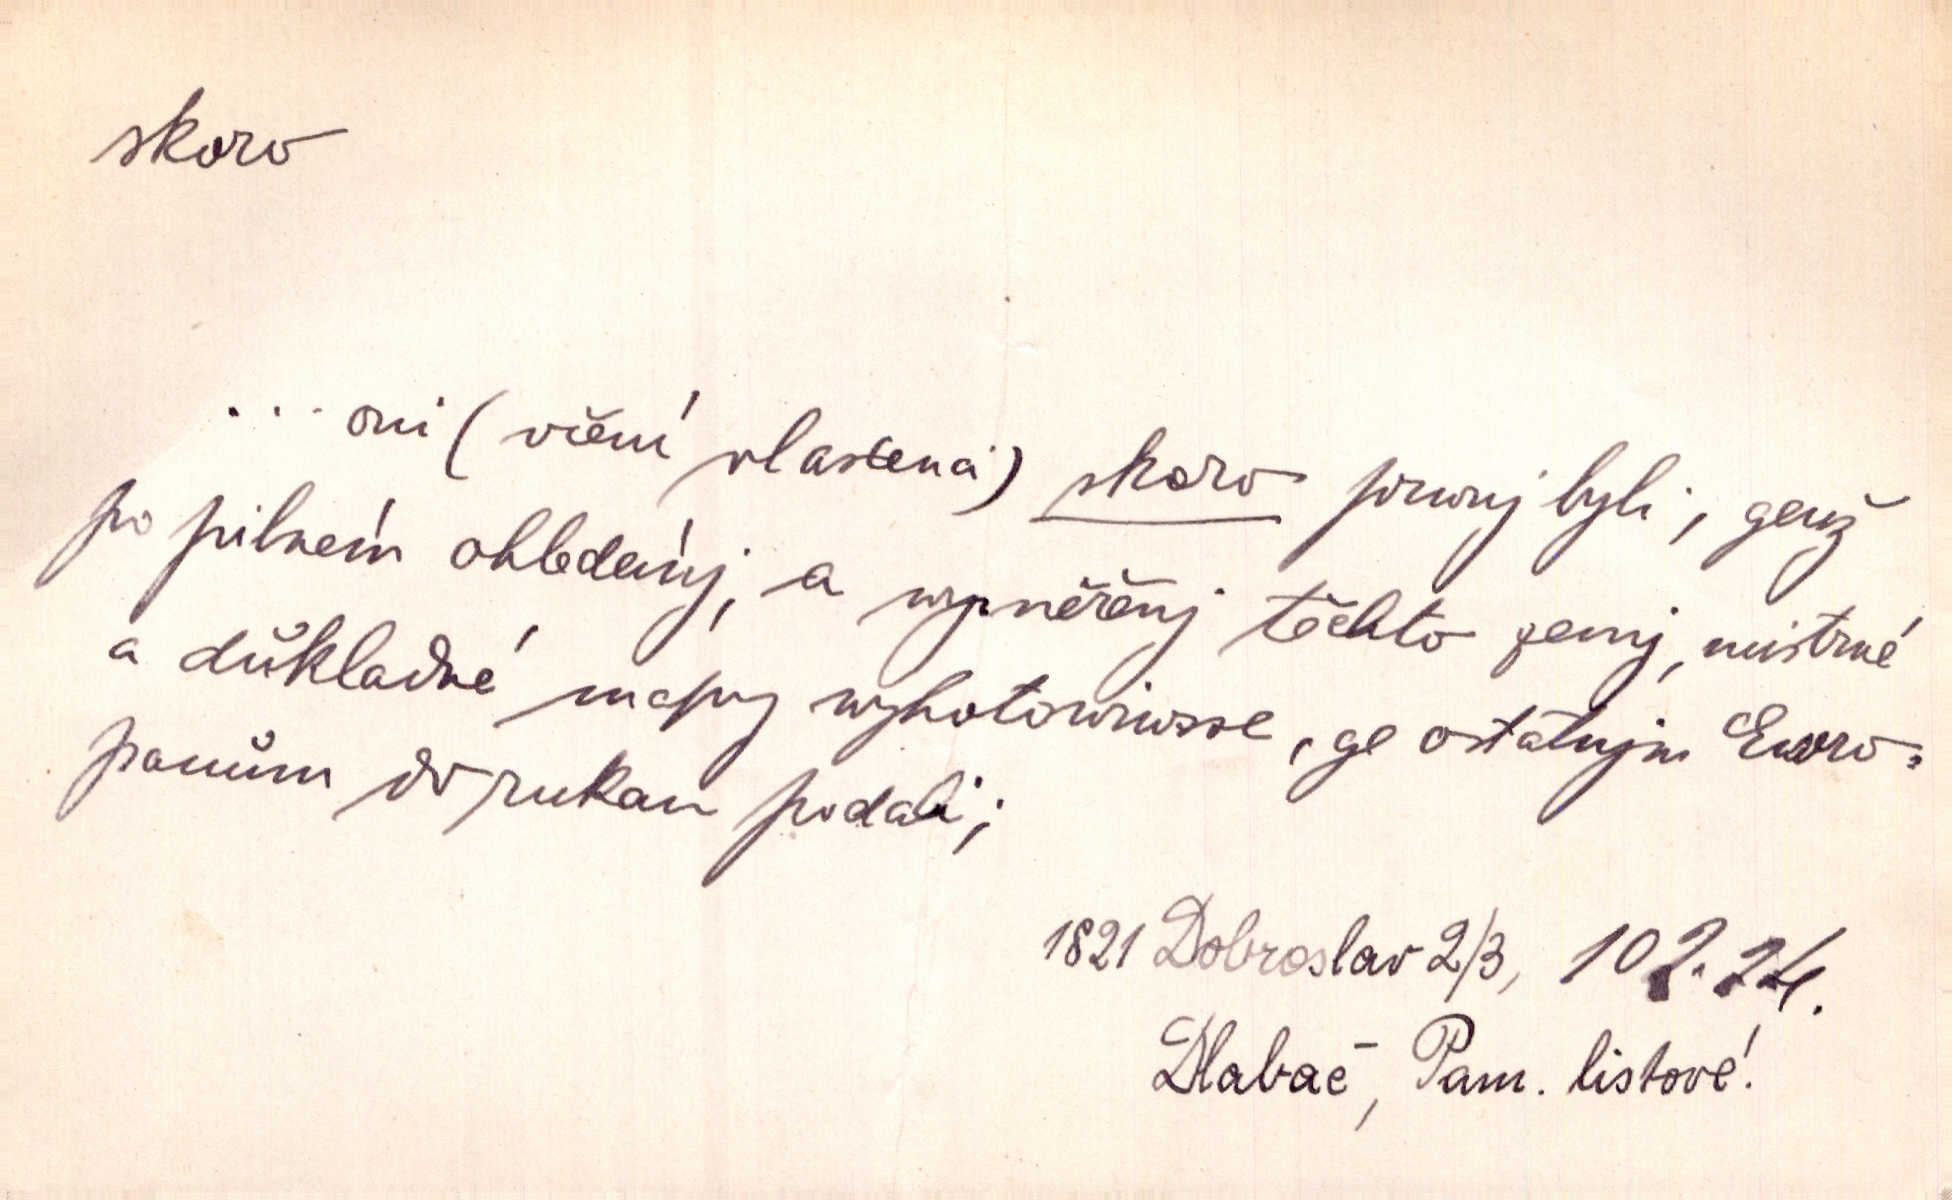 skoro
... oni (včení vlastenci) skoro prwnj byli, genž
po pilném ohledánj, a wyměřěnj těchto zemj, mistrné
a důkladné mapy wyhotowiwsse, ge ostatnjm Ewro=
panům do rukau podali;
1821 Dobroslav 2/3, 102.24.
Dlabač, Pam. listové.